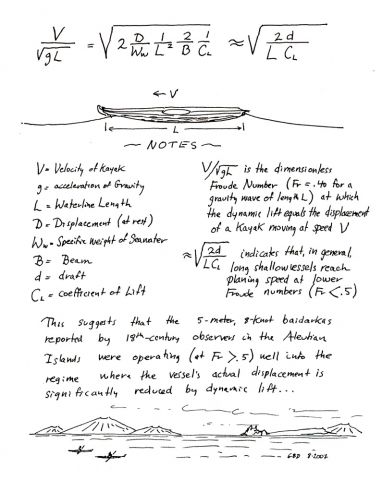 V/√gL = √(2 D/Ww 1/L² 2/B 1/CL) ≈ √(2d/(L CL))
← V
L
~ NOTES ~
V = Velocity of Kayak
g = acceleration of Gravity
L = Waterline Length
D = Displacement (at rest)
Ww = Specific Weight of Seawater
B = Beam
d = draft
CL = coefficient of Lift
V/√gL is the dimensionless
Froude Number (Fr = .40 for a
gravity wave of length L) at which
the dynamic lift equals the displacement
of a Kayak moving at speed V
≈ √(2d/(L CL)) indicates that, in general,
long shallow vessels reach
planing speed at lower
Froude numbers (Fr < .5)
This suggests that the 5-meter, 8-knot baidarkas
reported by 18th-century observers in the Aleutian
Islands were operating (at Fr > .5) well into the
regime where the vessel's actual displacement is
significantly reduced by dynamic lift...
GBD 8-2002